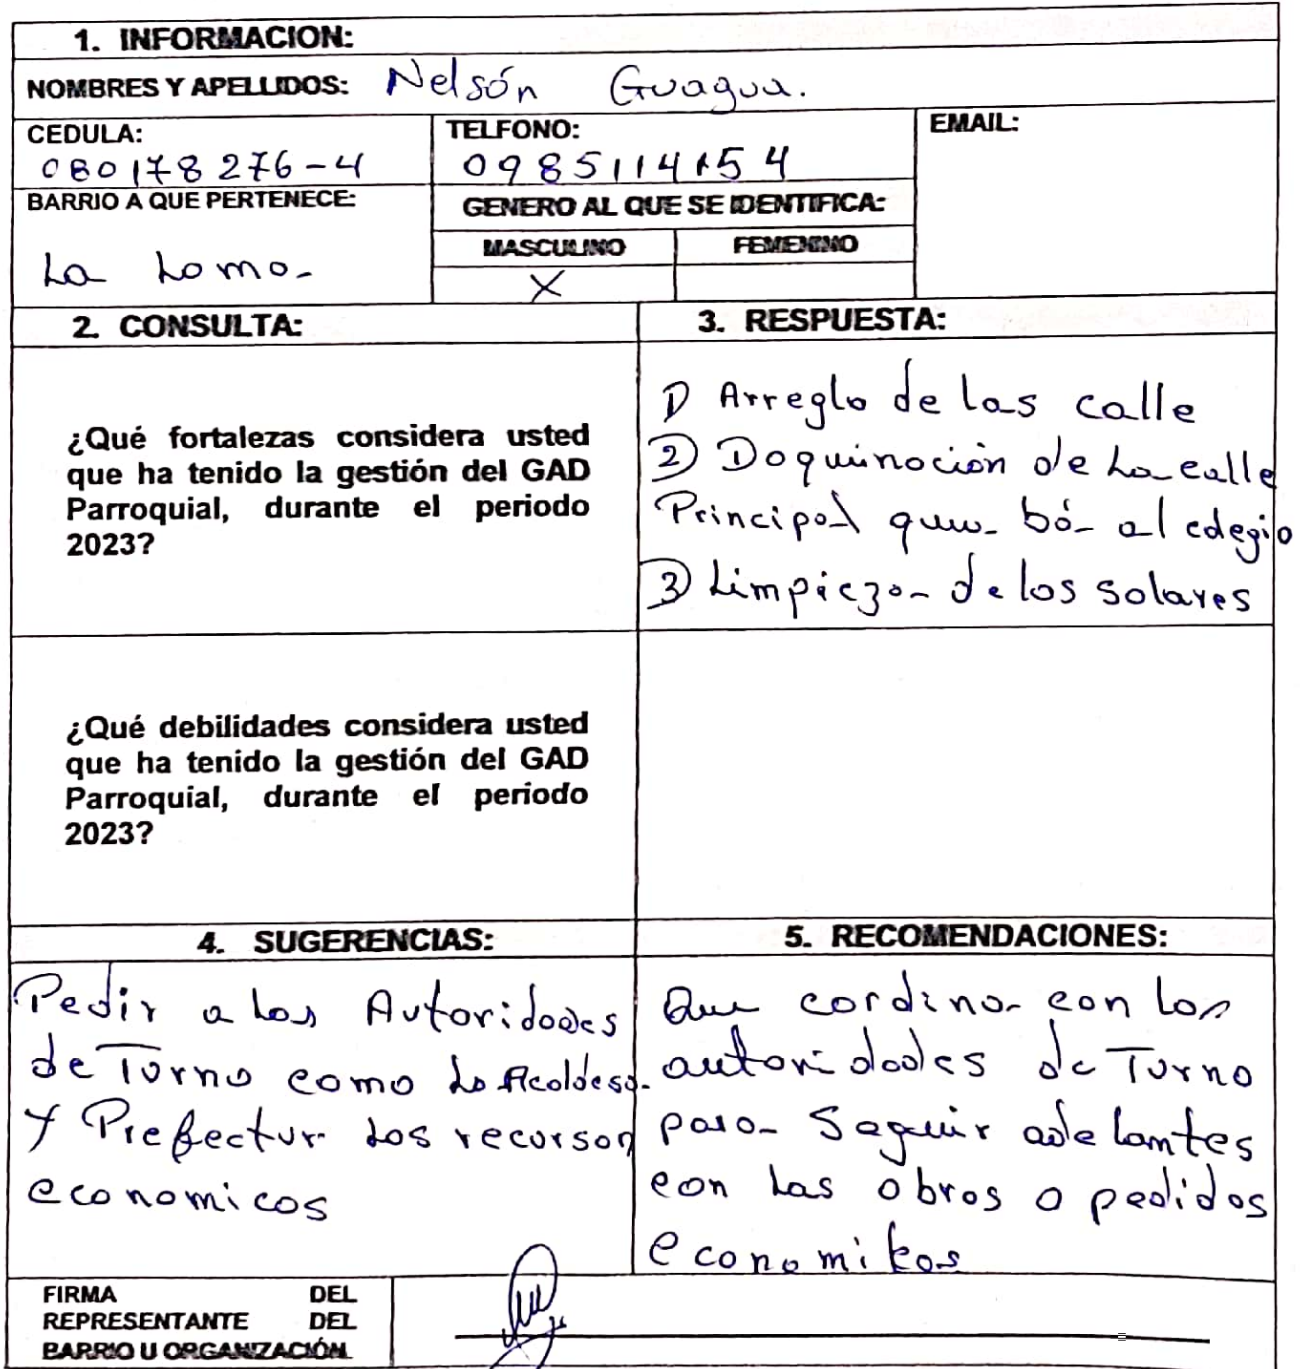 1. INFORMACION:
NOMBRES Y APELLIDOS: Nelsón Guagua.
CEDULA:
080178276-4
TELFONO:
0985114154
EMAIL:
BARRIO A QUE PERTENECE:
La Loma
GENERO AL QUE SE IDENTIFICA:
MASCULINO FEMENINO
X
2. CONSULTA:
3. RESPUESTA:
¿Qué fortalezas considera usted
que ha tenido la gestión del GAD
Parroquial, durante el periodo
2023?
1) Arreglo de las calle
2) Doquinación de La calle
Principal que bá al colegio
3) Limpieza de los solares
¿Qué debilidades considera usted
que ha tenido la gestión del GAD
Parroquial, durante el periodo
2023?
4. SUGERENCIAS:
Pedir a las Autoridades
de Turno como La Alcaldesa
y Prefectur los recurson
economicos
5. RECOMENDACIONES:
Que cordina con las
autoridades de Turno
para Seguir adelantes
con las obras o pedidos
economikos
FIRMA DEL
REPRESENTANTE DEL
BARRIO U ORGANIZACIÓN